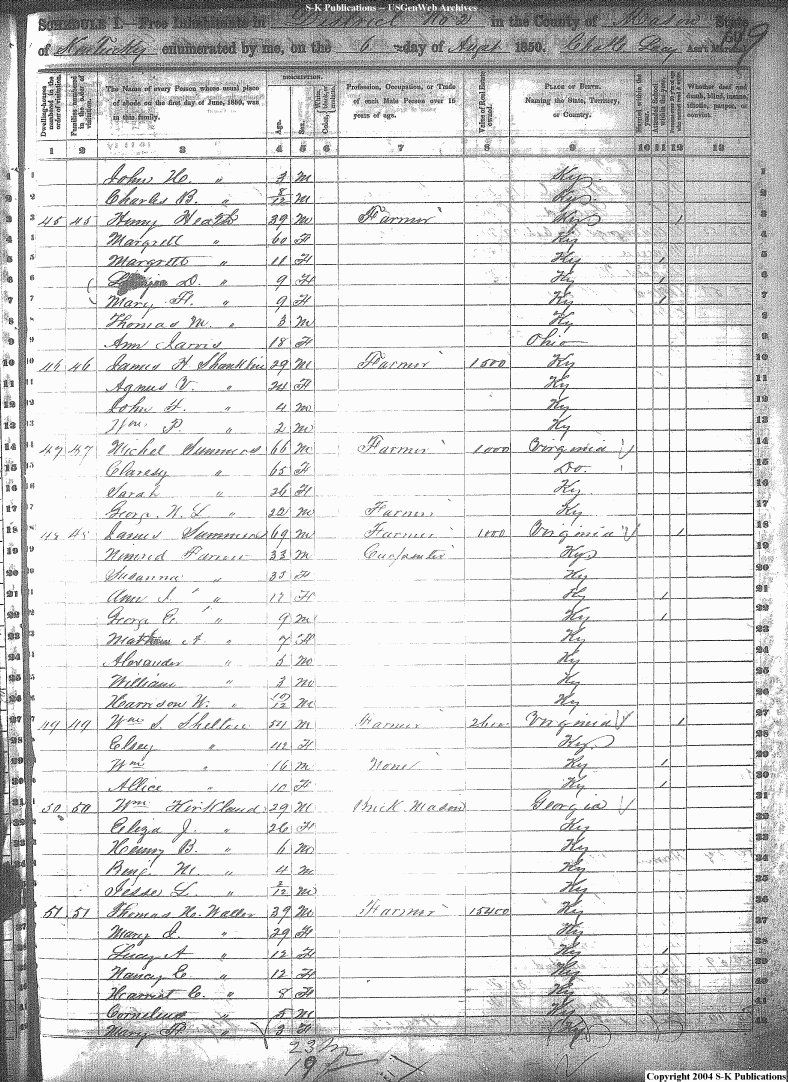 S-K Publications -- USGenWeb Archives
SCHEDULE I.—Free Inhabitants in District No 2 in the County of Mason State
of Kentucky enumerated by me, on the 6 day of Augst 1850. Ass't Marshal
9
Dwelling-houses numbered in the order of visitation.
Families numbered in the order of visitation.
The Name of every Person whose usual place of abode on the first day of June, 1850, was in this family.
DESCRIPTION.
Age.
Sex.
Profession, Occupation, or Trade of each Male Person over 15 years of age.
Value of Real Estate owned.
PLACE OF BIRTH. Naming the State, Territory, or Country.
Married within the year.
Attended School within the year.
Whether deaf and dumb, blind, insane, idiotic, pauper, or convict.
1 2 3 4 5 6 7 8 9 10 11 12 13
1 John H. " 3 M Ky. 1
2 Charles B. " 8/12 M Ky. 2
3 45 45 Henry Heath 39 M Farmer Ky 1 3
4 Margrett " 60 F Ky 4
5 Margrett " 11 F Ky 1 5
6 D. " 9 F Ky 1 6
7 Mary H. " 9 F Ky 1 7
8 Thomas M. " 3 M Ky 8
9 Ann Jarvis 18 F Ohio 9
10 46 46 James H Shanklin 29 M Farmer 1500 Ky 10
11 Agnus V. " 24 F Ky 11
12 John F. " 4 M Ky 12
13 Wm P. " 2 M Ky 13
14 47 47 Michel Summers 66 M Farmer 1000 Virginia 14
15 Claresy " 65 F Do. 15
16 Sarah " 26 F Ky. 16
17 George W. L " 22 M Farmer Ky 17
18 48 48 James Summers 69 M Farmer 1000 Virginia 1 18
19 Nimrod 33 M Carpenter Ky 19
20 Susanna " 33 F Ky 20
21 Ann J. " 12 F Ky 1 21
22 George E. " 9 M Ky 1 22
23 A " 7 F Ky 23
24 Alexander " 5 M Ky 24
25 William " 3 M Ky 25
26 Harrison W. " 10/12 M Ky 26
27 49 49 Wm S. Shelton M Farmer Virginia 1 27
28 Elsey " F Ky. 28
29 Wm " 16 M None Ky 1 29
30 Allice " 10 F Ky 1 30
31 50 50 Wm Kirkland 29 M Brick Mason Georgia 31
32 Eliza J. " 26 F Ky 32
33 Henry B. " 6 M Ky 33
34 Benj. M. " 4 M Ky 34
35 Jesse L. " 2/12 M Ky 35
36 51 51 Thomas H. Waller 39 M Farmer 15400 Ky 36
37 Mary J. " 29 F Ky 37
38 Lucy A " 12 F Ky 1 38
39 Nancy E. " 12 F Ky 1 39
40 Harriet C. " 8 F Ky 1 40
41 Cornelius " 5 M Ky 41
42 Mary P. " 3 F Ky 42
23 m
19 f
Copyright 2004 S-K Publications